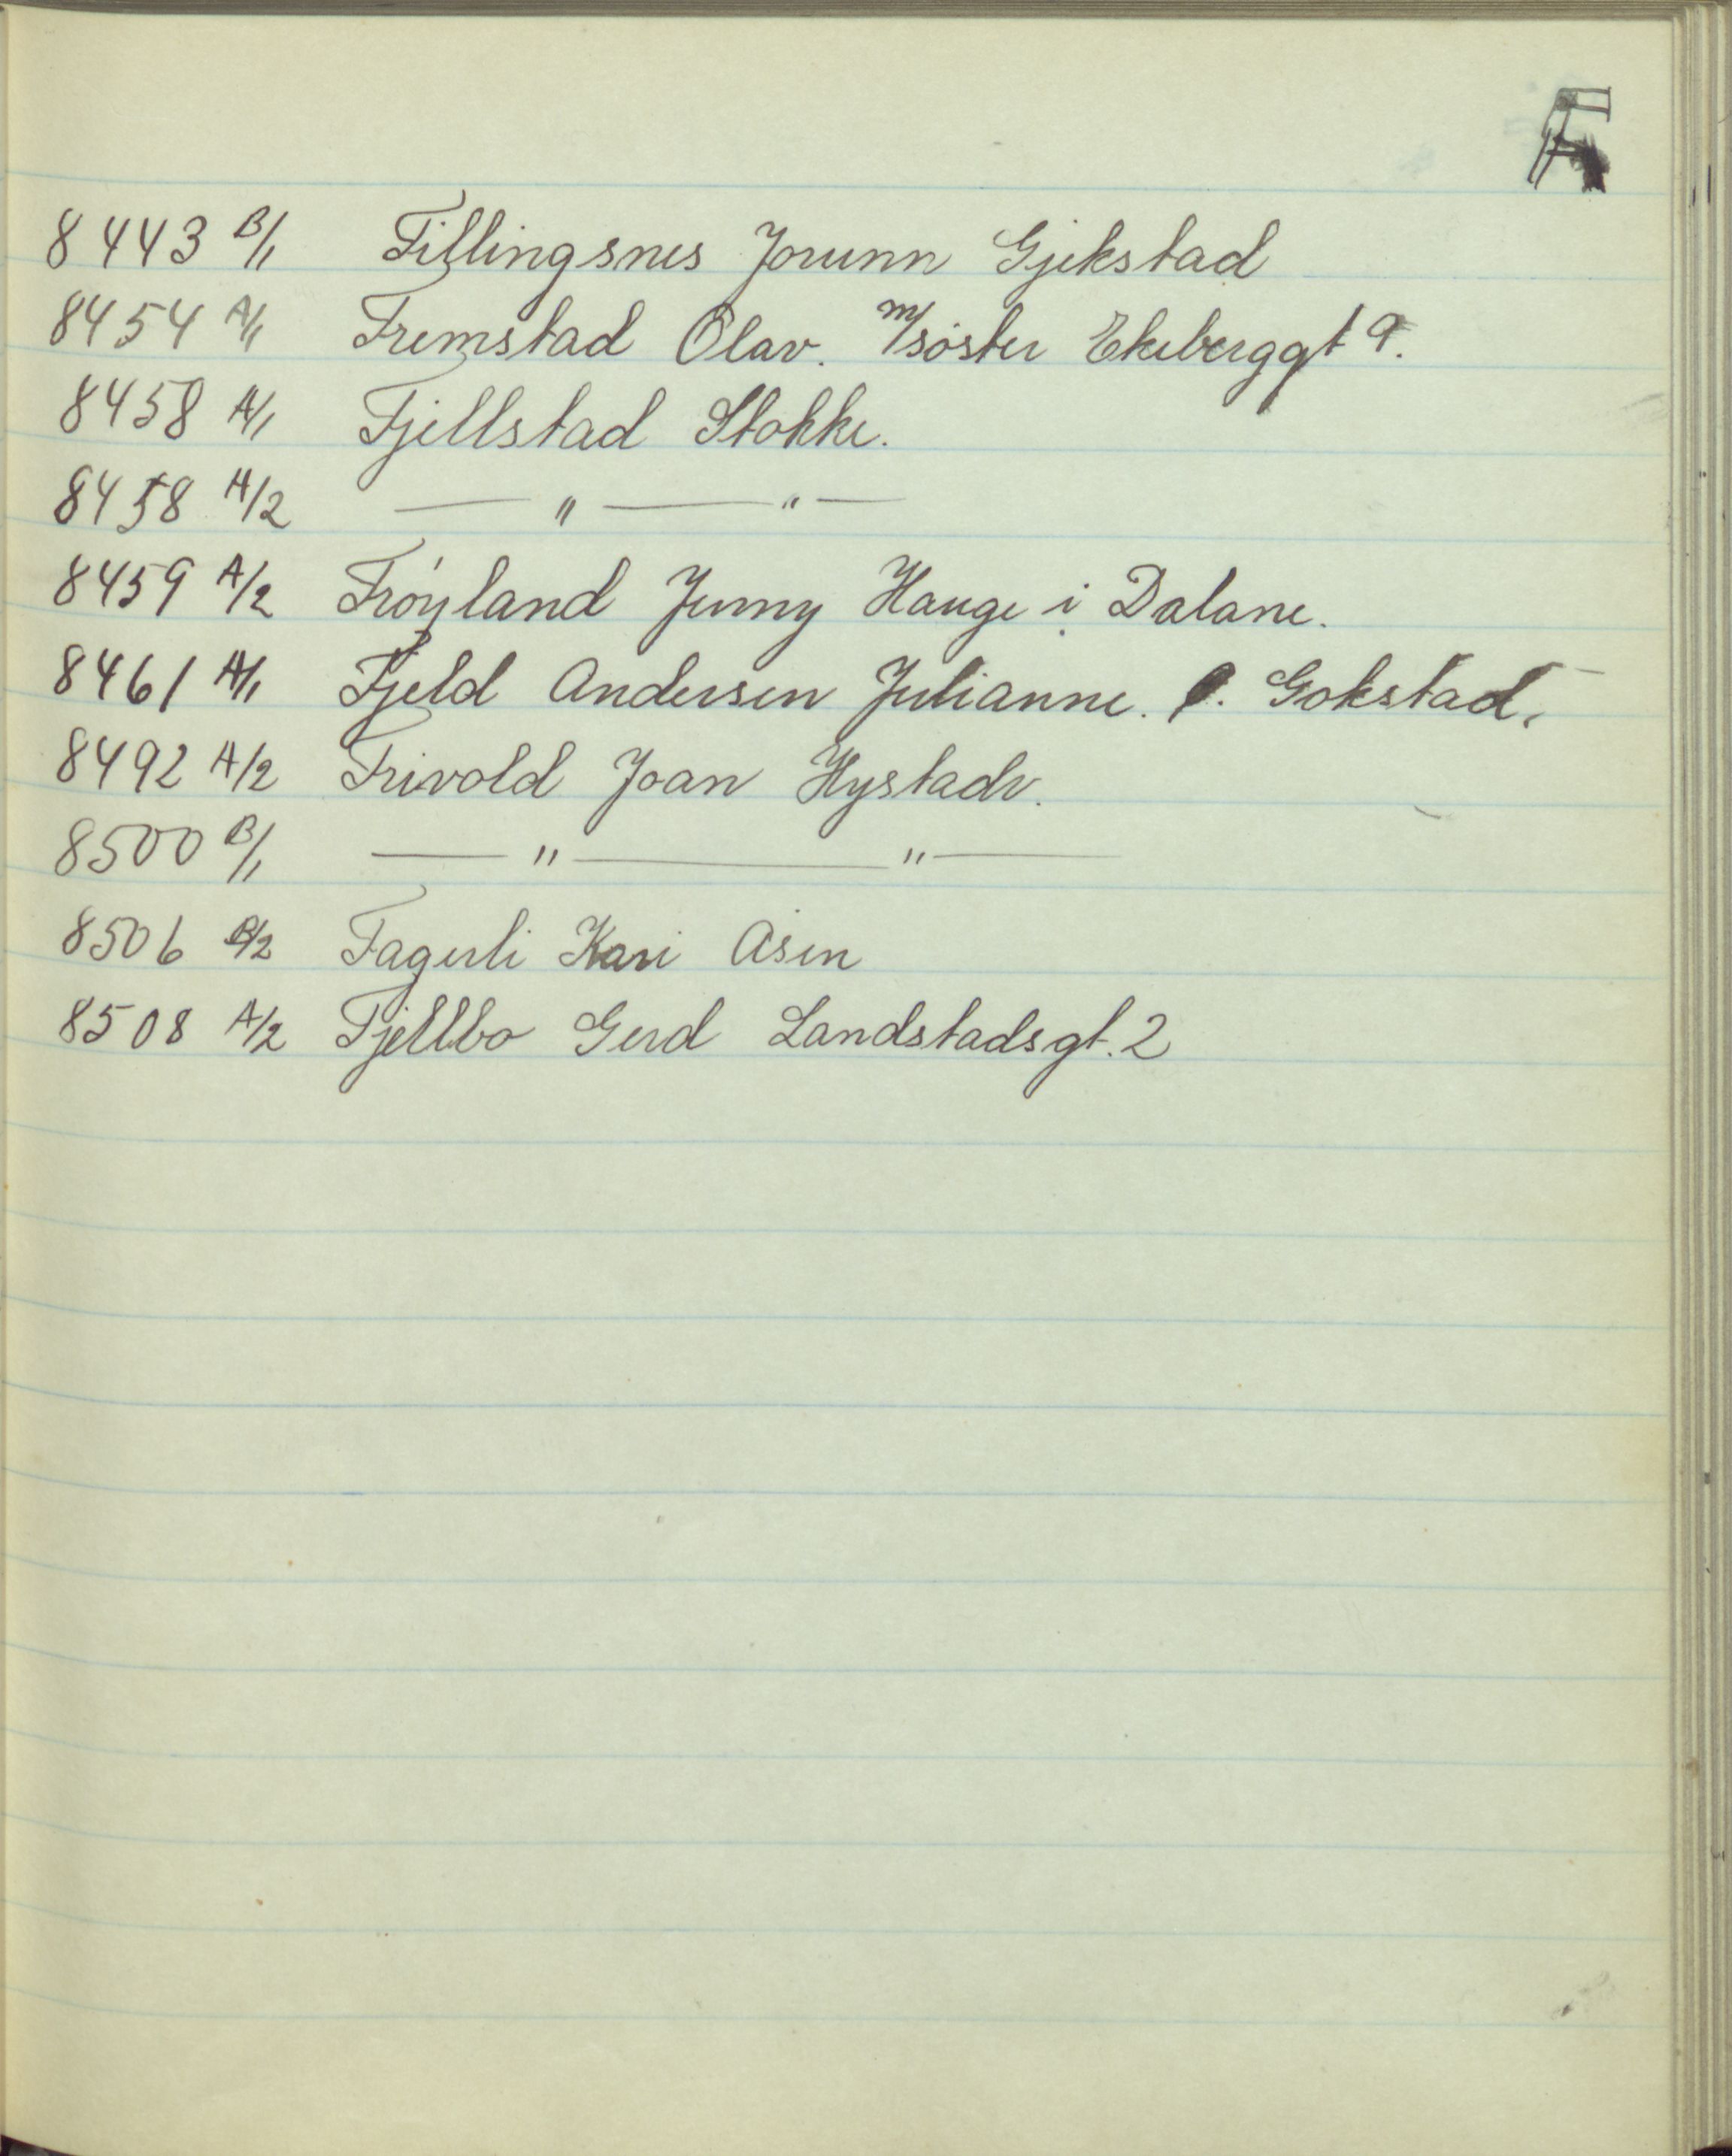 F
8443 B/1 Fillingsnes Jorunn Gjekstad
8454 A/1 Fremstad Olav. m/søster Ekeberggt 9.
8458 A/1 Fjellstad Stokke.
8458 A/2 — " — " —
8459 A/2 Frøyland Jenny Hauge i Dalane.
8461 A/1 Fjeld Andersen Julianne. Gokstad.
8492 A/2 Frivold Joan Hystadv.
8500 B/1 — " — " —
8506 B/2 Fagerli Kari Åsen
8508 A/2 Fjellbo Gerd Landstadsgt. 2